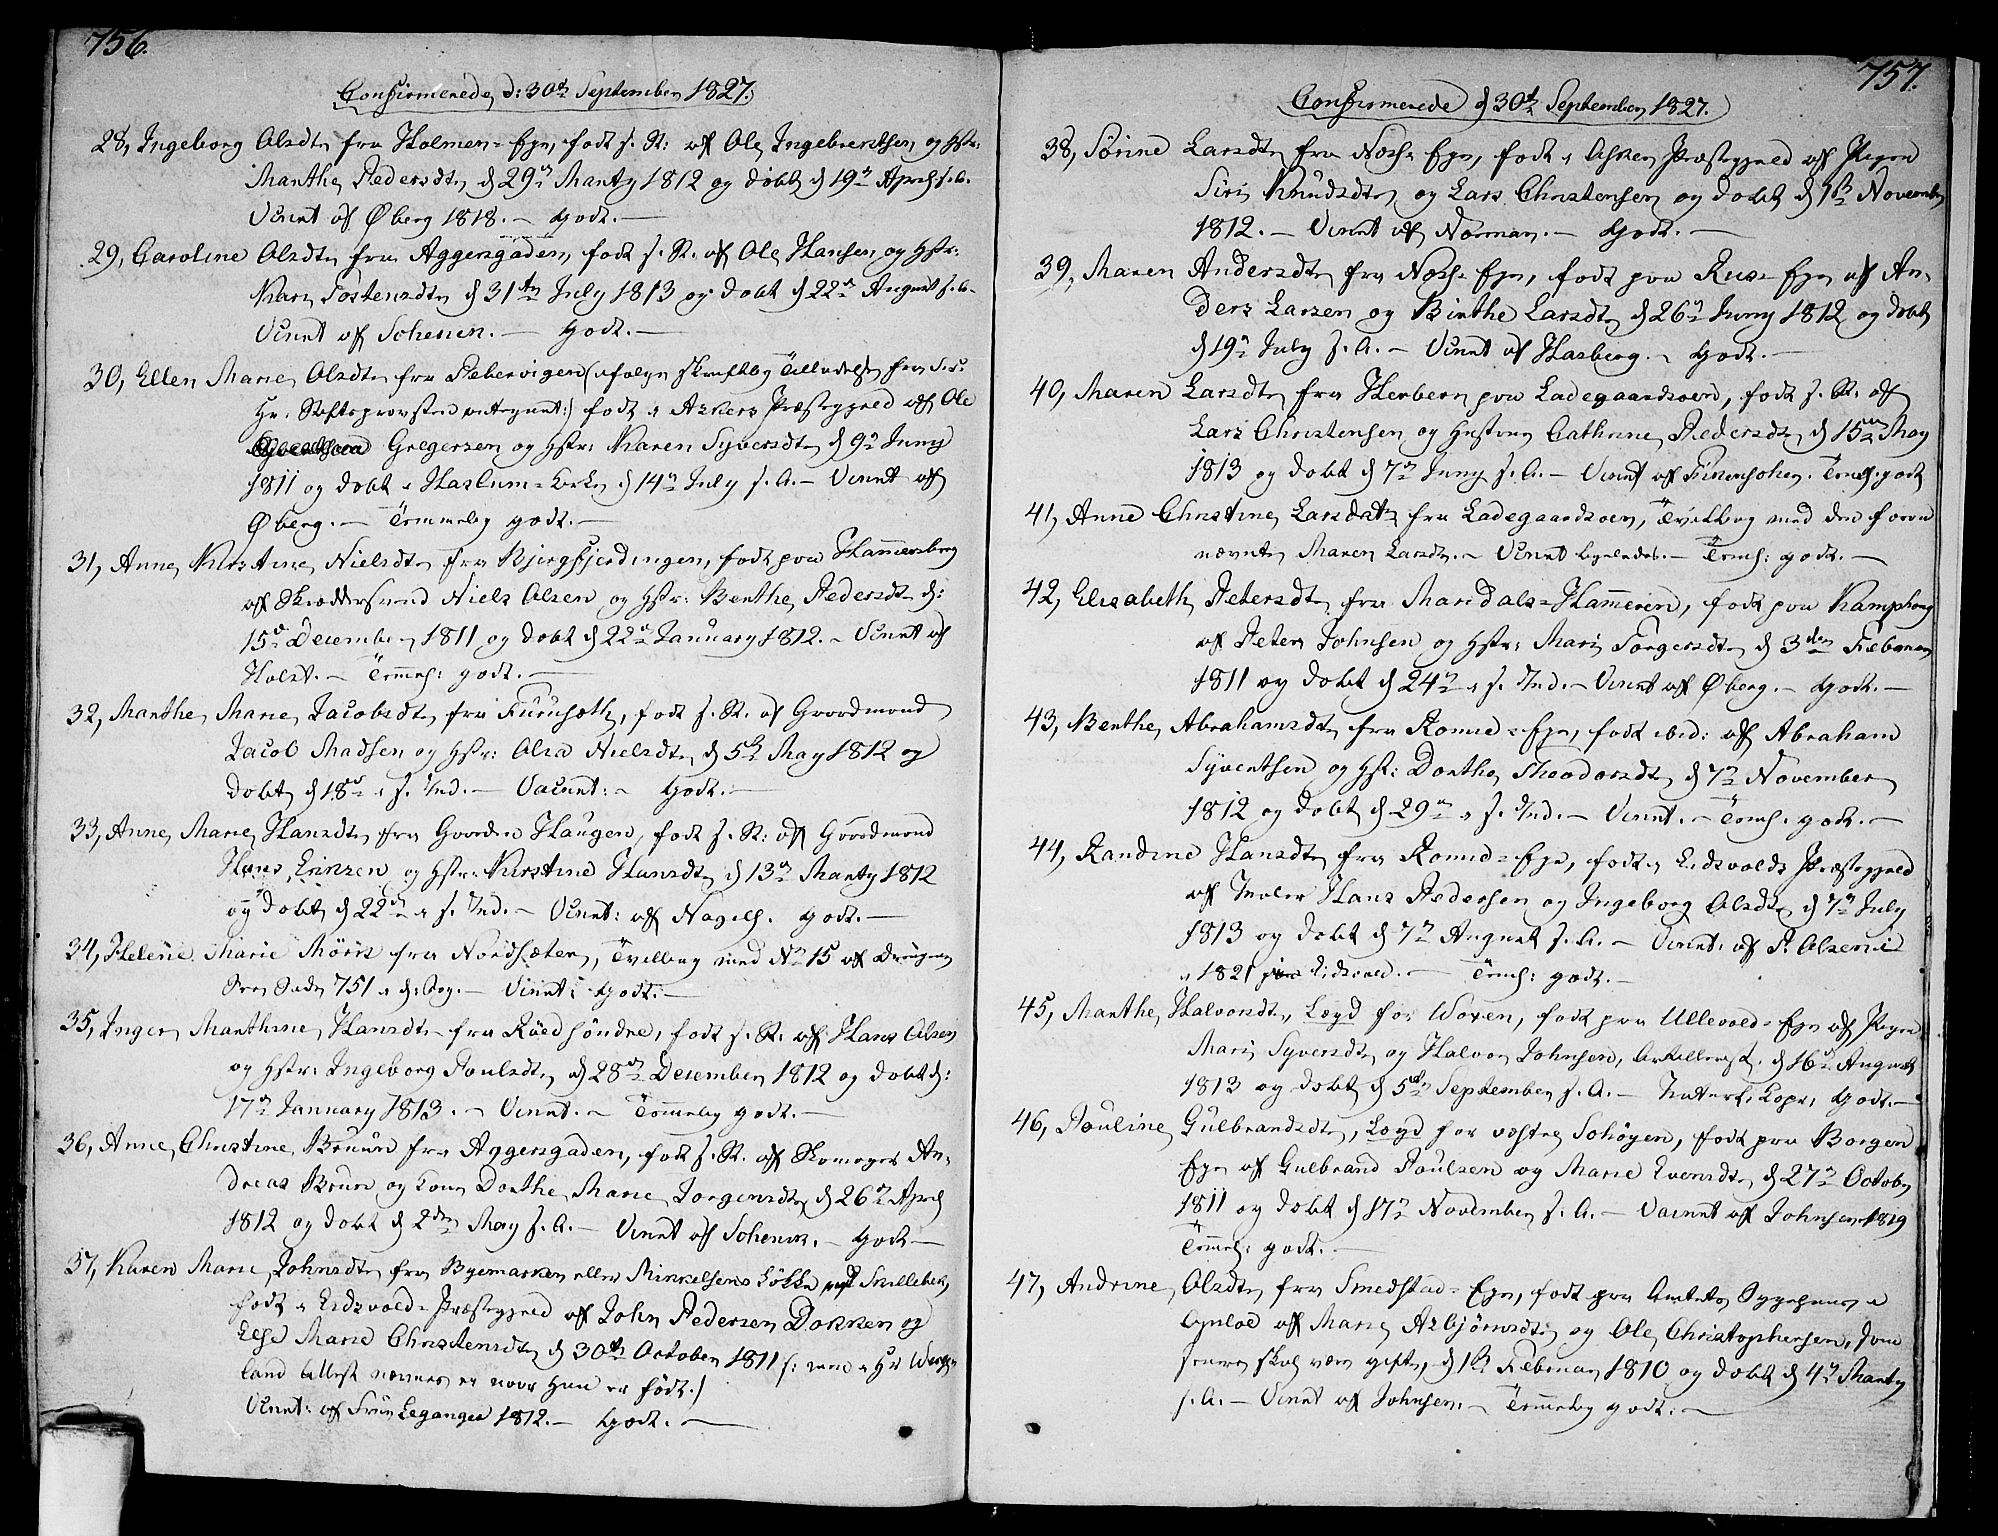 756.
Confirmerede, d: 30te September 1827.
28, Ingeborg Olsdtr fra Holmen-Eje, født h. St: af Ole Ingebrectsen og Hstr:
Marthe Pedersdtr d 29de Marty 1812 og døbt d 19de April s. A.
Vaccnt af Øberg 1818. – Godt. –
29, Caroline Olsdtr fra Aggersgaden, født h. St. af Ole Hansen og Hstr:
Kari Tostensdtr d 31te July 1813 og døbt d 22de August s. A.
Vccnt af Schenen. – Godt. –
30, Ellen Marie Olsdtr fra Pebervigen (efølge skriftlig Tilladelse fra
Hr. Stiftsprovsten) født i Askers Præstegjeld af Ole
Gregersen og Hstr: Karen Syversdtr d 9de Juny
1811 og døbt i Haslum-Kirke d 14de July s. A. – Vccnt af
Øberg. – Temmelig godt. –
31, Anne Kirstine Nielsdtr fra Bjergfjerdingen, født paa Hammersborg
af Skræddersvend Niels Olsen og Hstr: Berthe Pedersdtr d:
15de December 1811 og døbt d 22de January 1812. – Vccnt af
Holst. – Temml: godt. –
32, Marthe Marie Jacobsdtr fra Furuseth, født h. St. af Gaardmand
Jacob Madsen og Hstr: Olea Nielsdtr d 5te May 1812 og
døbt d 18de i s. Md. – Vaccnt: – Godt. –
33, Anne Marie Hansdtr fra Gaarden Haugen, født h. St: af Gaardmand
Hans Ericsen og Hstr: Kirstine Hansdtr d 13de Marty 1812
og døbt d 22de i s. Md. – Vccnt: af Nagell. Godt. –
34, Helene Marie Mørk fra Nordsæter, Tvilling med No 15 af
Pag. 751 i d: Bog. – Vccnt: Godt. –
35, Inger Marthine Hansdtr fra Røed søndre, født h. St. af Hans Olsen
og Hstr: Ingeborg Poulsdtr d 28de December 1812 og døbt d:
17de January 1813. – Vccnt. – Temmelig godt. –
36, Anne Christine Bruun fra Aggersgaden, født h. St. af Skomager An-
dreas Bruun og Kone Dorthe Marie Jorgensdtr d 26de April
1812 og døbt d 2den May s. A. – Vccnt af Schenck. – Godt –
37, Karen Marie Johnsdtr fra Byemarken eller Mikkelsens Løkke ved Skillebek,
født i Eidsvold-Præstegjeld af John Pedersen Dokken og
Else Marie Christensdtr d 30te October 1811 (: men i Hr
land attest nævnes ei naar hun er født.)
Vccnt: af Frue Leganger 1812. – Godt. –
757.
Confirmerede d 30te September 1827.
38, Sørine Larsdtr fra Nosse-Eje, født i Asker Præstegjeld af Pigen
Siri Knudsdtr og Lars Christensen og døbt d 1ste November
1812. – Vccnt af Norman. – Godt. –
39, Maren Andersdtr fra Nosse-Eje, født paa Ruse-Eje af An-
ders Larsen og Birthe Larsdtr d 26de Juny 1812 og døbt
d 19de July s. A. – Vccnt af Hasberg. – Godt. –
40, Maren Larsdtr fra Herbern paa Ladegaardsøen, født h. St. af
Lars Christensen og Hustrue Cathrine Pedersdtr d 15de May
1813 og døbt d 7de Juny s. A. – Vccnt af . Temml: godt
41, Anne Christine Larsdatr fra Ladegaardsøen, Tvilling med den foran
nævnte Maren Larsdtr. – Vccnt ligeledes. – Temml: godt. –
42, Elisabeth Petersdtr fra Maridals-Hammeren, født paa Kamphoug
af Peter Johnsen og Hstr: Mari Torgersdtr d 3den Februar
1811 og døbt d 24de i s. Md. – Vccnt af Øberg. – Godt. –
43, Berthe Abrahamsdtr fra Romed-Eje, født ibid: af Abraham
Syvertsen og Hst: Dorthe Theodorsdtr d 7de November
1812 og døbt d 29de i s. Md. – Vccnt. – Temml: godt. –
44, Randine Hansdtr fra Romed-Eje, født i Eidsvolds Præstegjeld
af Inder Hans Pedersen og Ingeborg Olsdtr d 7de July
1813 og døbt d 7de August s. A. – Vccnt: af P. Olsen i
1821 Eidsvold. – Temml: godt. –
45, Marthe Halvorsdtr, Lægd for Woxen, født paa Ullevold-Eje af Pigen
Mari Syversdtr og Halvor Johnsen, Artillerist. d 16de August
1813 og døbt d 5te September s. A. – Naturl: Kopr, Godt. –
46, Pauline Gulbrandsdtr, Lægd for vestre Schøyen, født paa Borgen
Eje af Gulbrand Poulsen og Marie Evensdtr d 27de October
1811 og døbt d 17de November s. A. – Vaccnt af Johnsen 1819
Temml: godt. –
47, Andrine Olsdtr fra Smedstad-Eje, født paa Amtets Sygehuus i
af Marie Asbjørnsdtr og Ole Christophersen, som
senere skal være gifte, d 1ste Februar 1810 og døbt d 4de Marty
s. A. – Vccnt af Johnsen. – Temmelig godt. –